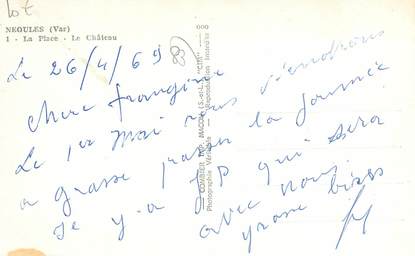 Lot
NEOULES (Var)
1 - La Place - Le Château
000
Le 26/4/69
28
Chere frangine
Le 1er Mai nous viendrons
a grasse passer la journée
Je y a JP qui sera
avec nous.
grosse bises
COMBIER IMP. MACON (S.-et-L.) "CIM"
Photographie Véritable - Reproduction Interdite